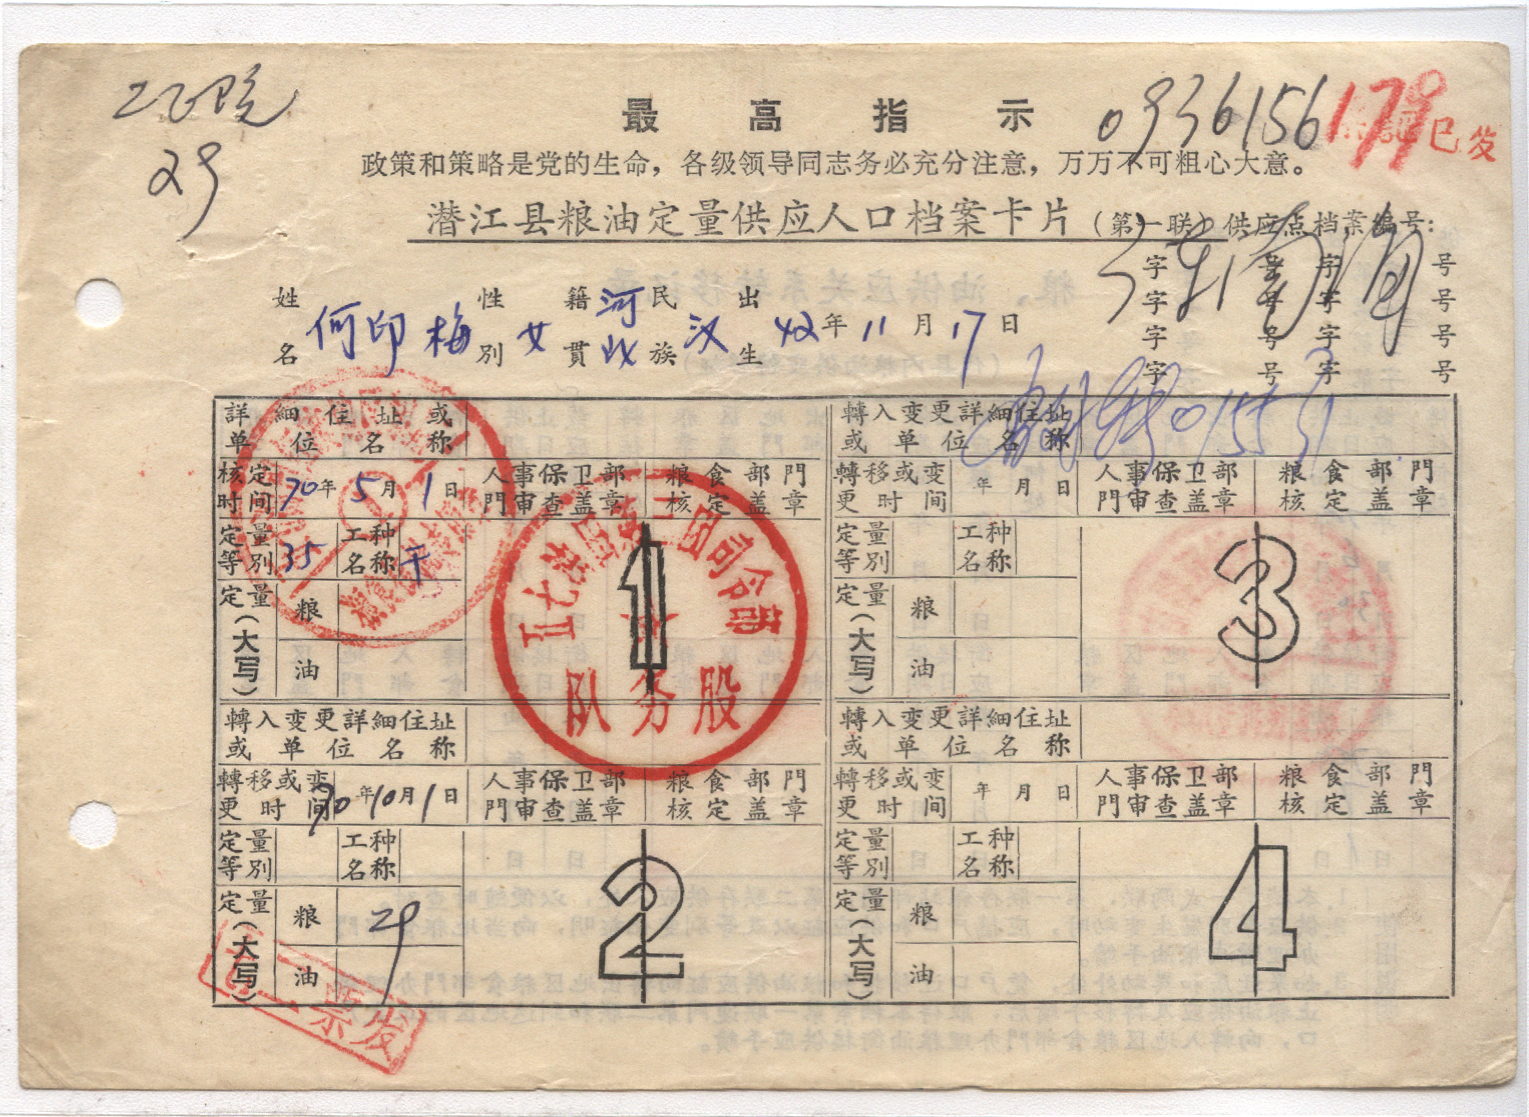 29
最高指示
0936156
179
已发
政策和策略是党的生命，各级领导同志务必充分注意，万万不可粗心大意。
潜江县粮油定量供应人口档案卡片（第一联）供应点档案编号：
字 号 字 号
字 号 字 号
字 号 字 号
字 号 字 号
姓名 何印梅 性別 女 籍貫 河北 民族 汉 出生 42年11月17日
詳細住址或单位名称
轉入变更詳細住址或单位名称
核定时间 70年5月1日 人事保卫部門审查盖章 粮食部門核定盖章
轉移或变更时间 年 月 日 人事保卫部門审查盖章 粮食部門核定盖章
定量等別 35 工种名称 干
定量等別 工种名称
定量（大写） 粮 油
定量（大写） 粮 油
1
3
司令部
队务股
轉入变更詳細住址或单位名称
轉入变更詳細住址或单位名称
轉移或变更时间 70年10月1日 人事保卫部門审查盖章 粮食部門核定盖章
轉移或变更时间 年 月 日 人事保卫部門审查盖章 粮食部門核定盖章
定量等別 工种名称
定量等別 工种名称
定量（大写） 粮 29 油
定量（大写） 粮 油
2
4
票发